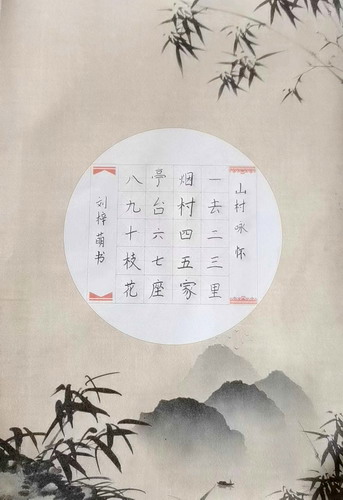 山村咏怀
一去二三里
烟村四五家
亭台六七座
八九十枝花
刘梓萌书